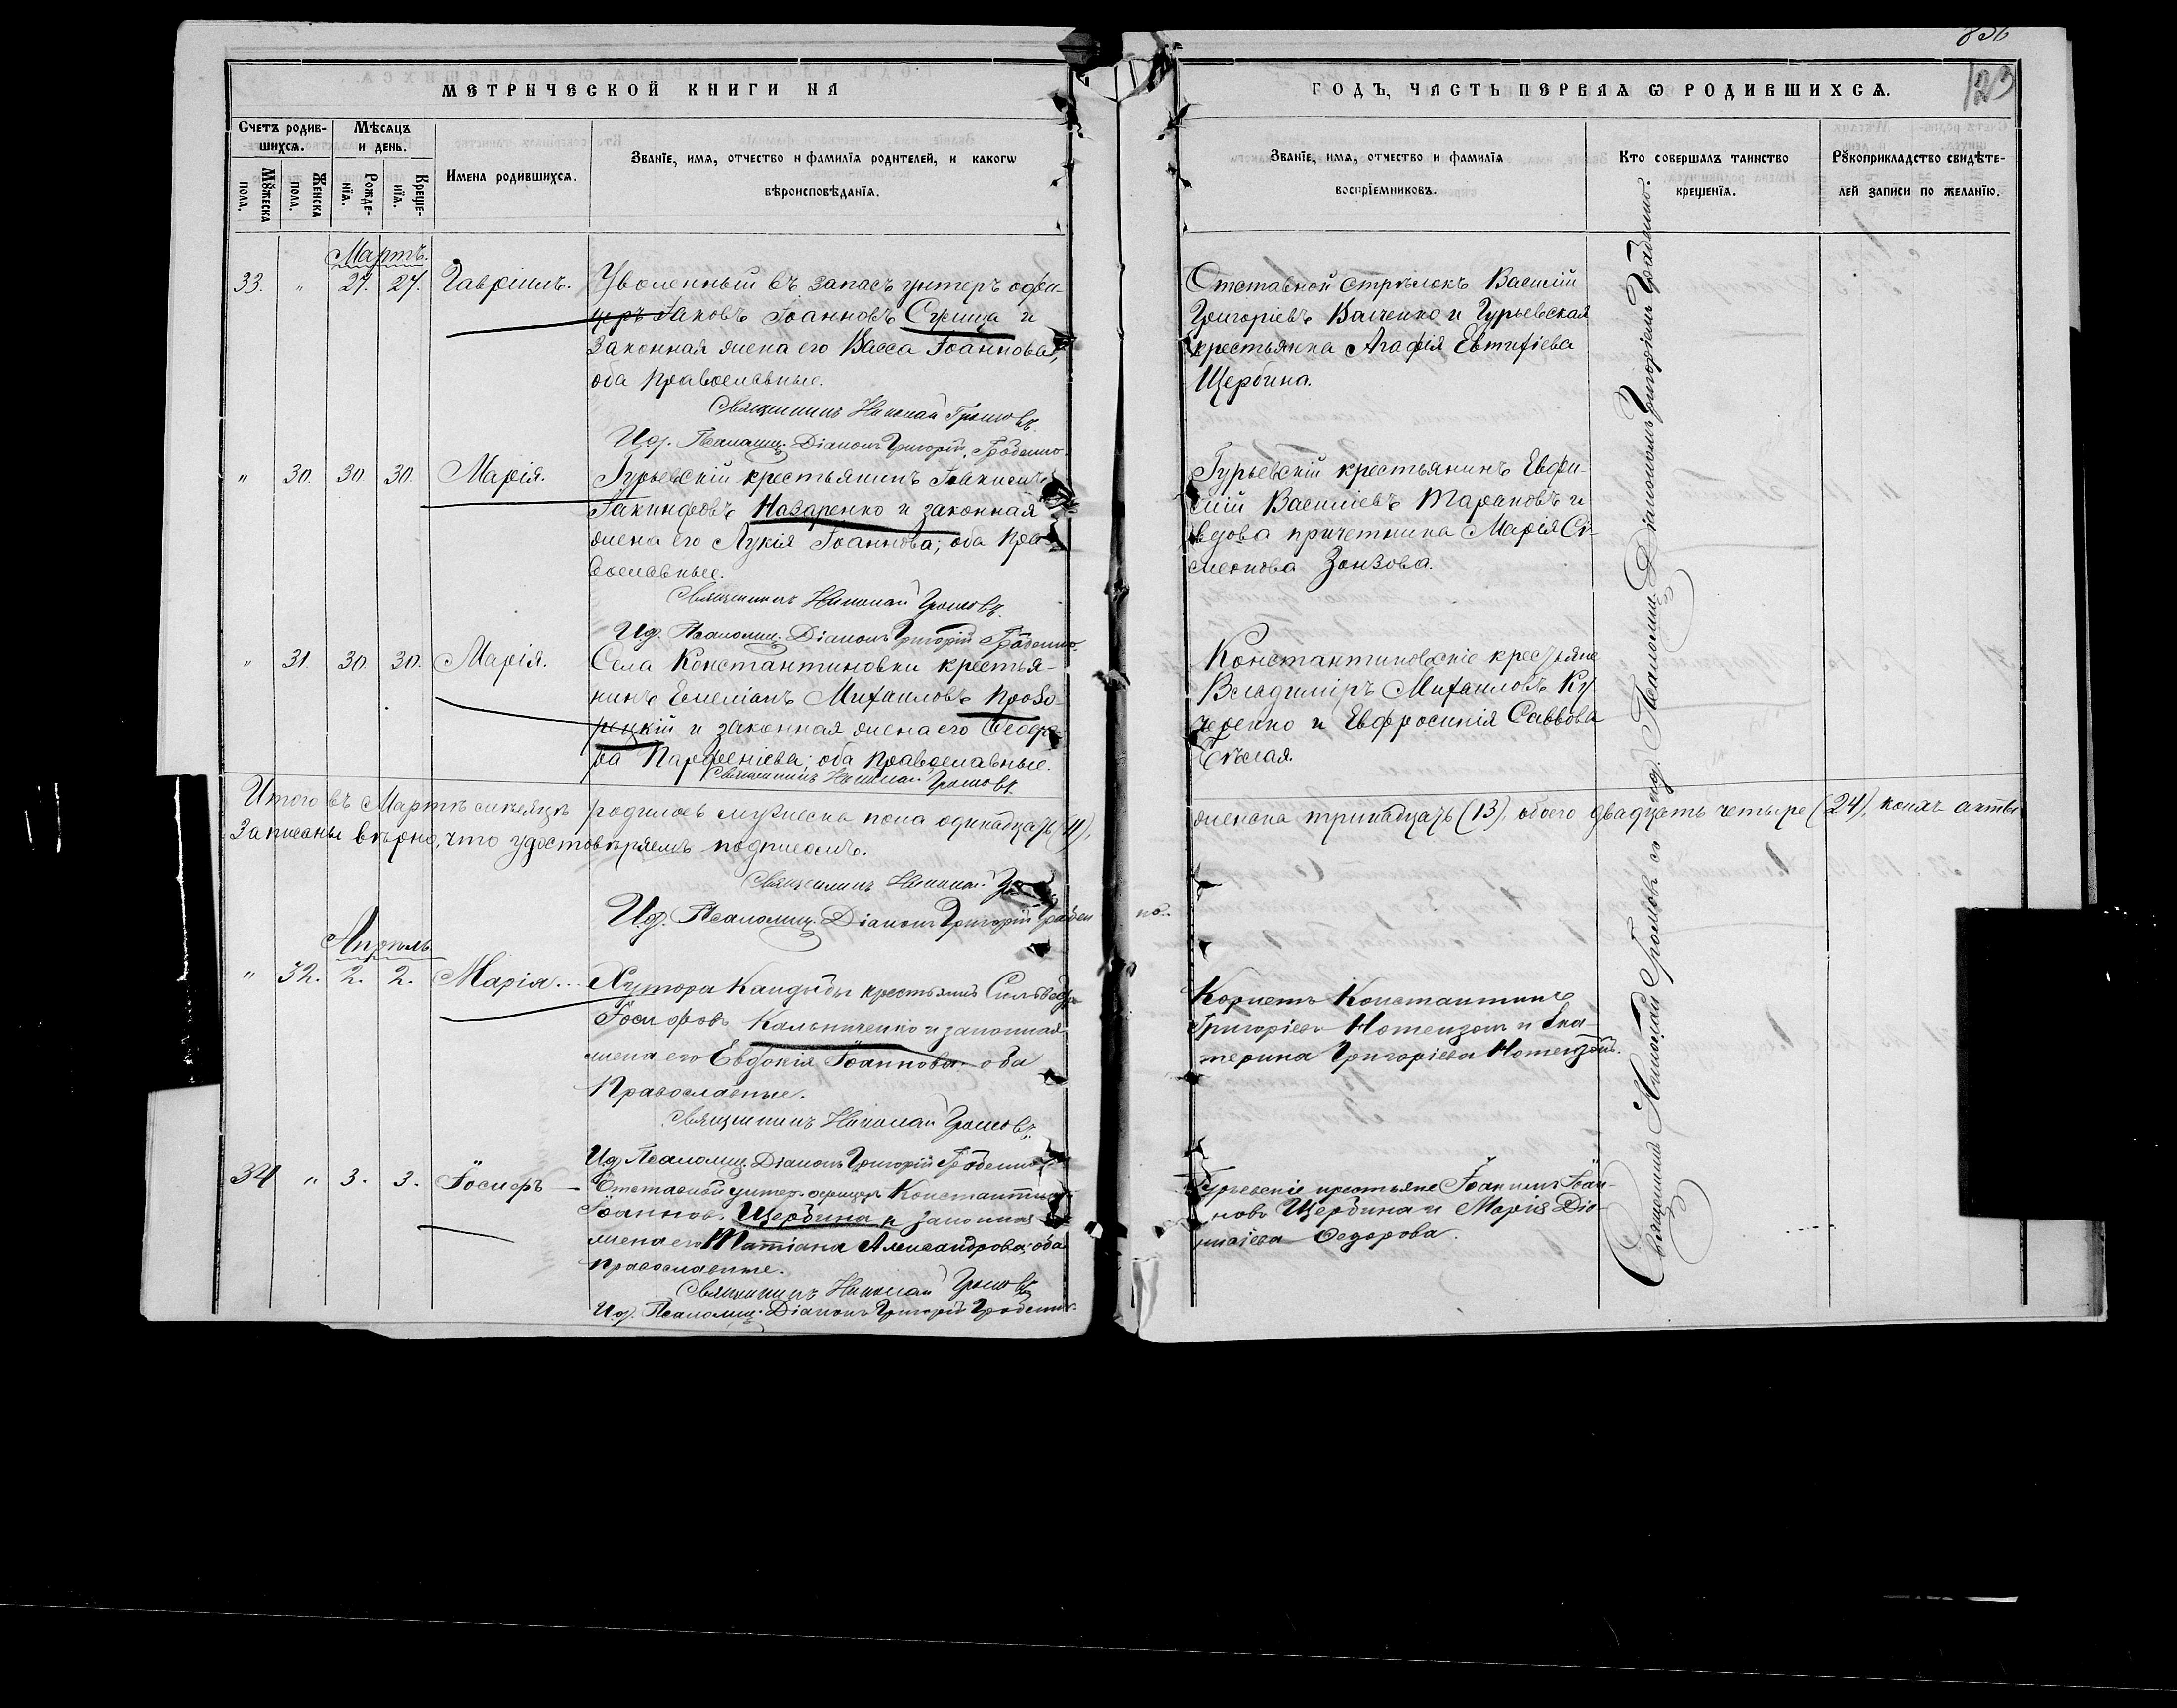 836
123
МЕТРИЧЕСКОЙ КНИГИ НА
ГОДЪ, ЧАСТЬ ПЕРВАЯ Ѡ РОДИВШИХСЯ.
Счетъ родив-
шихся.
Мѣсяцъ
и день.
Мꙋжеска
пола.
Женска
пола.
Рожде-
нїя.
Креще-
нїя.
Имена родившихся.
Званїе, имя, отчество и фамилїя родителей, и какогѡ
вѣроисповѣданїя.
Званїе, имя, отчество и фамилїя
воспрїемниковъ.
Кто совершалъ таинство
крещенїя.
Рꙋкоприкладство свидѣте-
лей записи по желанїю.
Мартъ.
33. " 27. 27. Гавріилъ.
Уволенный въ запасъ унтеръ офи-
церъ Іаковъ Іоанновъ и
законная жена его Васса Іоаннова,
оба православные.
Священникъ Николай Громовъ.
И.д. Псаломщ. Діаконъ Григорій Гроденко
Отставной стрѣлокъ Василій
Григоріевъ Валченко и Гурьевская
крестьянка Агафія Евтихіева
Щербина.
" 30. 30. 30. Марія.
Гурьевскій крестьянинъ
Іакинфовъ Назаренко и законная
жена его Лукія Іоаннова; оба пра-
вославные.
Священникъ Николай Громовъ.
И.д. Псаломщ. Діаконъ Григорій Гроденко
Гурьевскій крестьянинъ Евфи-
мій Василіевъ Тарановъ и
вдова причетника Марія Си-
меонова Зонзова.
" 31. 30. 30. Марія.
Села Константиновки крестья-
нинъ Емеліанъ Михаиловъ Прово-
рецкій и законная жена его Ѳеодо-
ра Парфеніева; оба православные.
Священникъ Николай Громовъ.
Константиновскіе крестьяне
Владиміръ Михаиловъ Ку-
черенко и Евфросинія Саввова
Бѣлая.
Итого въ Мартѣ мѣсяцѣ родилось мужеска пола одинадцать (11),
женска тринадцать (13), обоего двадцать четыре (24), коихъ акты
записаны вѣрно, что удостовѣряемъ подписомъ.
Священникъ Николай
И.д. Псаломщ. Діаконъ Григорій Гроден
ко.
Апрѣль
" 32. 2. 2. Марія...
Хутора Кандыбы крестьянинъ Сильвестръ
Іосифовъ Кальниченко и законная
жена его Евдокія Іоаннова оба
Православные.
Священникъ Николай Громовъ.
И.д. Псаломщ. Діаконъ Григорій Гроденко
Корнетъ Константинъ
Григоріевъ и Ека-
терина Григоріева
34 " 3. 3. Іосифъ —
Отставной унтер-офицеръ Константинъ
Іоаннов. Щербина и законная
жена его Татіана Александрова; оба
православные.
Священникъ Николай Громовъ
И.д. Псаломщ. Діаконъ Григорій Гроденко.
Гурьевскіе крестьяне Іоаннъ Іоан-
новъ Щербина и Марія Діо-
нисіева Ѳедорова.
Священникъ Николай Громовъ съ и.д. Псаломщ. Діакономъ Григоріемъ Гроденко.